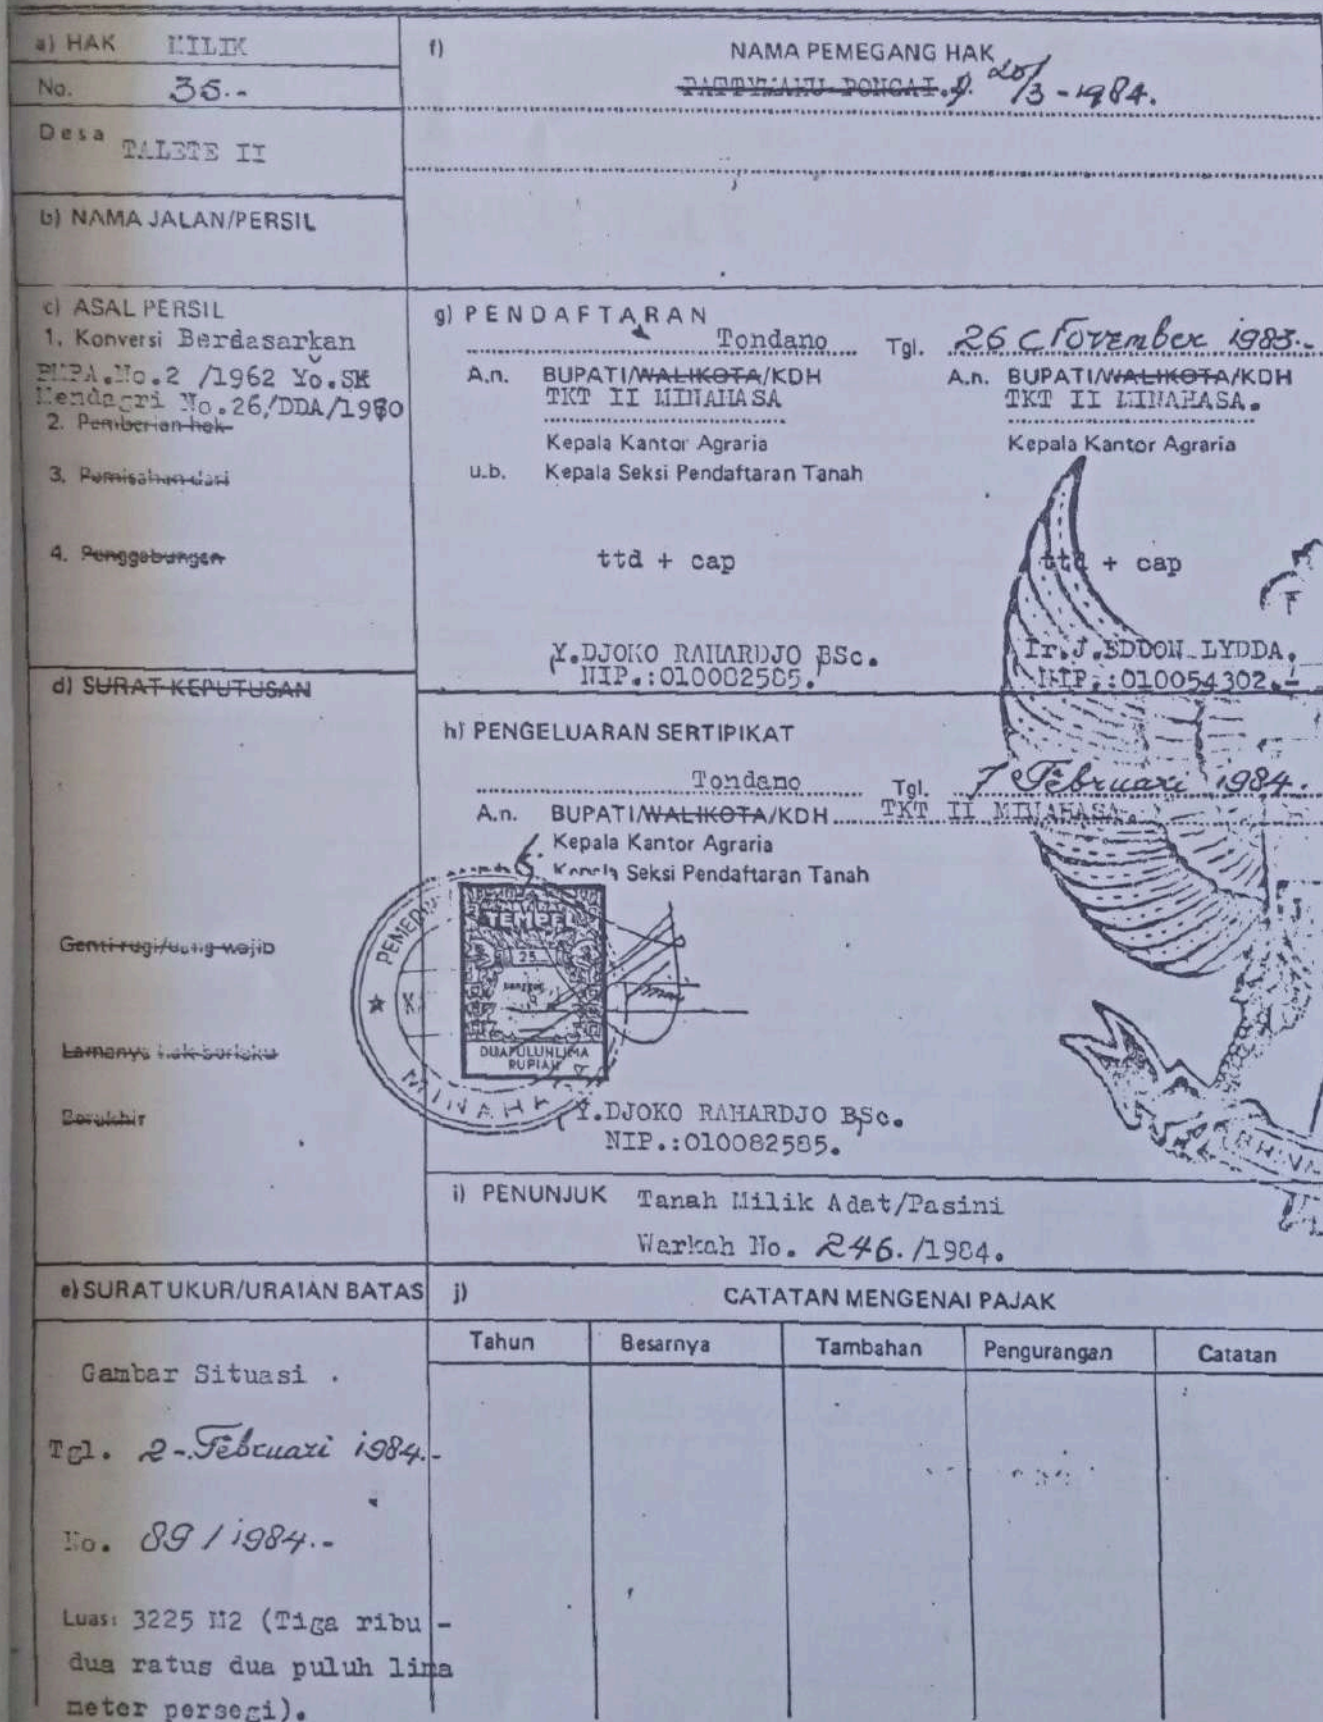 a) HAK MILIK
No. 35.-
Desa TALETE II
b) NAMA JALAN/PERSIL
c) ASAL PERSIL
1. Konversi Berdasarkan
PMPA.No.2 /1962 Yo.SK
Mendagri No.26/DDA/1970
2. Pemberian hak
3. Pemisahan dari
4. Penggabungan
d) SURAT KEPUTUSAN
Ganti rugi/uang wajib
Lamanya hak berlaku
Berakhir
e) SURAT UKUR/URAIAN BATAS
Gambar Situasi .
Tgl. 2-Februari 1984.-
No. 89 / 1984.-
Luas: 3225 M2 (Tiga ribu -
dua ratus dua puluh lima
meter persegi).
f) NAMA PEMEGANG HAK
/3 - 1984.
g) PENDAFTARAN
Tondano Tgl. 26 November 1983.-
A.n. BUPATI/WALIKOTA/KDH A.n. BUPATI/WALIKOTA/KDH
TKT II MINAHASA TKT II MINAHASA.
Kepala Kantor Agraria Kepala Kantor Agraria
u.b. Kepala Seksi Pendaftaran Tanah
ttd + cap ttd + cap
Y.DJOKO RAHARDJO BSc. Ir.J.EDDON LYDDA.
NIP.:010082585. NIP.:010054302.-
h) PENGELUARAN SERTIPIKAT
Tondano Tgl. 7 Februari 1984.
A.n. BUPATI/WALIKOTA/KDH TKT II MINAHASA.
Kepala Kantor Agraria
Kepala Seksi Pendaftaran Tanah
TEMPEL
25
DUAPULUHLIMA
RUPIAH
MINAHA
Y.DJOKO RAHARDJO BSc.
NIP.:010082585.
i) PENUNJUK Tanah Milik Adat/Pasini
Warkah No. 246./1984.
j) CATATAN MENGENAI PAJAK
Tahun Besarnya Tambahan Pengurangan Catatan